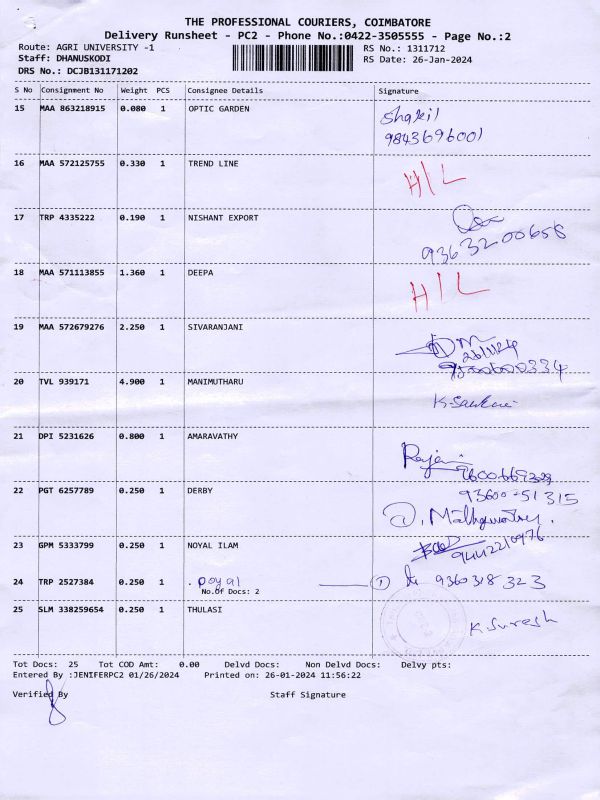 THE PROFESSIONAL COURIERS, COIMBATORE
Delivery Runsheet - PC2 - Phone No.:0422-3505555 - Page No.:2
Route: AGRI UNIVERSITY -1 RS No.: 1311712
Staff: DHANUSKODI RS Date: 26-Jan-2024
DRS No.: DCJB131171202
S No Consignment No Weight PCS Consignee Details Signature
15 MAA 863218915 0.080 1 OPTIC GARDEN Shakil
9843696001
16 MAA 572125755 0.330 1 TREND LINE H/L
17 TRP 4335222 0.190 1 NISHANT EXPORT
9363200658
18 MAA 571113855 1.360 1 DEEPA H/L
19 MAA 572679276 2.250 1 SIVARANJANI
26/1/24
9500600334
20 TVL 939171 4.900 1 MANIMUTHARU
21 DPI 5231626 0.800 1 AMARAVATHY
22 PGT 6257789 0.250 1 DERBY 93600-51315
23 GPM 5333799 0.250 1 NOYAL ILAM 9442210976
24 TRP 2527384 0.250 1 . Poyal 1 9360318323
No.Of Docs: 2
25 SLM 338259654 0.250 1 THULASI K. Suresh
Tot Docs: 25 Tot COD Amt: 0.00 Delvd Docs: Non Delvd Docs: Delvy pts:
Entered By :JENIFERPC2 01/26/2024 Printed on: 26-01-2024 11:56:22
Verified By Staff Signature